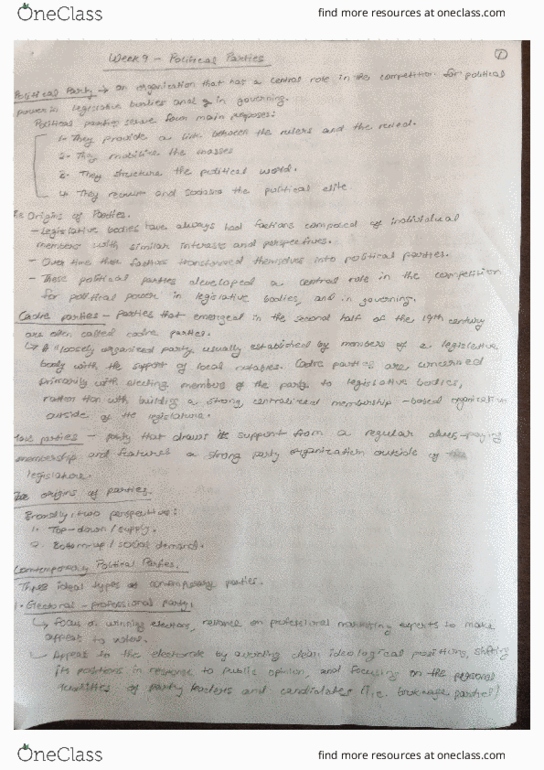 OneClass
find more resources at oneclass.com
Week 9 - Political Parties
1
Political Party → an organization that has a central role in the competition for political
power in legislative bodies and in governing.
Political parties serve four main purposes:
1. They provide a link between the rulers and the ruled.
2. They mobilize the masses
3. They structure the political world.
4. They recruit and socialise the political elite
Origins of Parties.
- Legislative bodies have always had factions composed of individual
members with similar interests and perspectives.
- Over time these factions transformed themselves into political parties.
- These political parties developed a central role in the competition
for political power in legislative bodies, and in governing.
Cadre parties - Parties that emerged in the second half of the 19th century
are often called cadre parties.
↳ A "loosely organized party usually established by members of a legislative
body with the support of local notables. Cadre parties are concerned
primarily with electing members of the party to legislative bodies,
rather than with building a strong, centralized membership-based organization
outside of the legislature.
Mass parties - party that draws its support from a regular dues-paying
membership and features a strong party organization outside of the
legislature.
The origins of parties.
Broadly, two perspectives:
1. Top-down / supply.
2. Bottom-up / social demand.
Contemporary Political Parties.
Three ideal types of contemporary parties.
1. Electoral - professional party.
↳ Focus on winning elections, reliance on professional marketing experts to make
appeals to voters.
↳ Appeal to the electorate by avoiding clear ideological positions, shifting
its positions in response to public opinion, and focusing on the personal
qualities of party leaders and candidates (i.e. brokerage parties)
OneClass
find more resources at oneclass.com